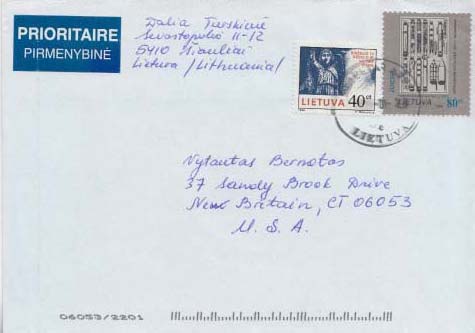 PRIORITAIRE
PIRMENYBINĖ
Dalia
11-12
5410 Šiauliai
Lietuva /Lithuania/
LIETUVA 40 ct
LIETUVA 80 ct
LIETUVA
Vytautas Bernotas
37 Sandy Brook Drive
New Britain, CT 06053
U. S. A.
06053/2201